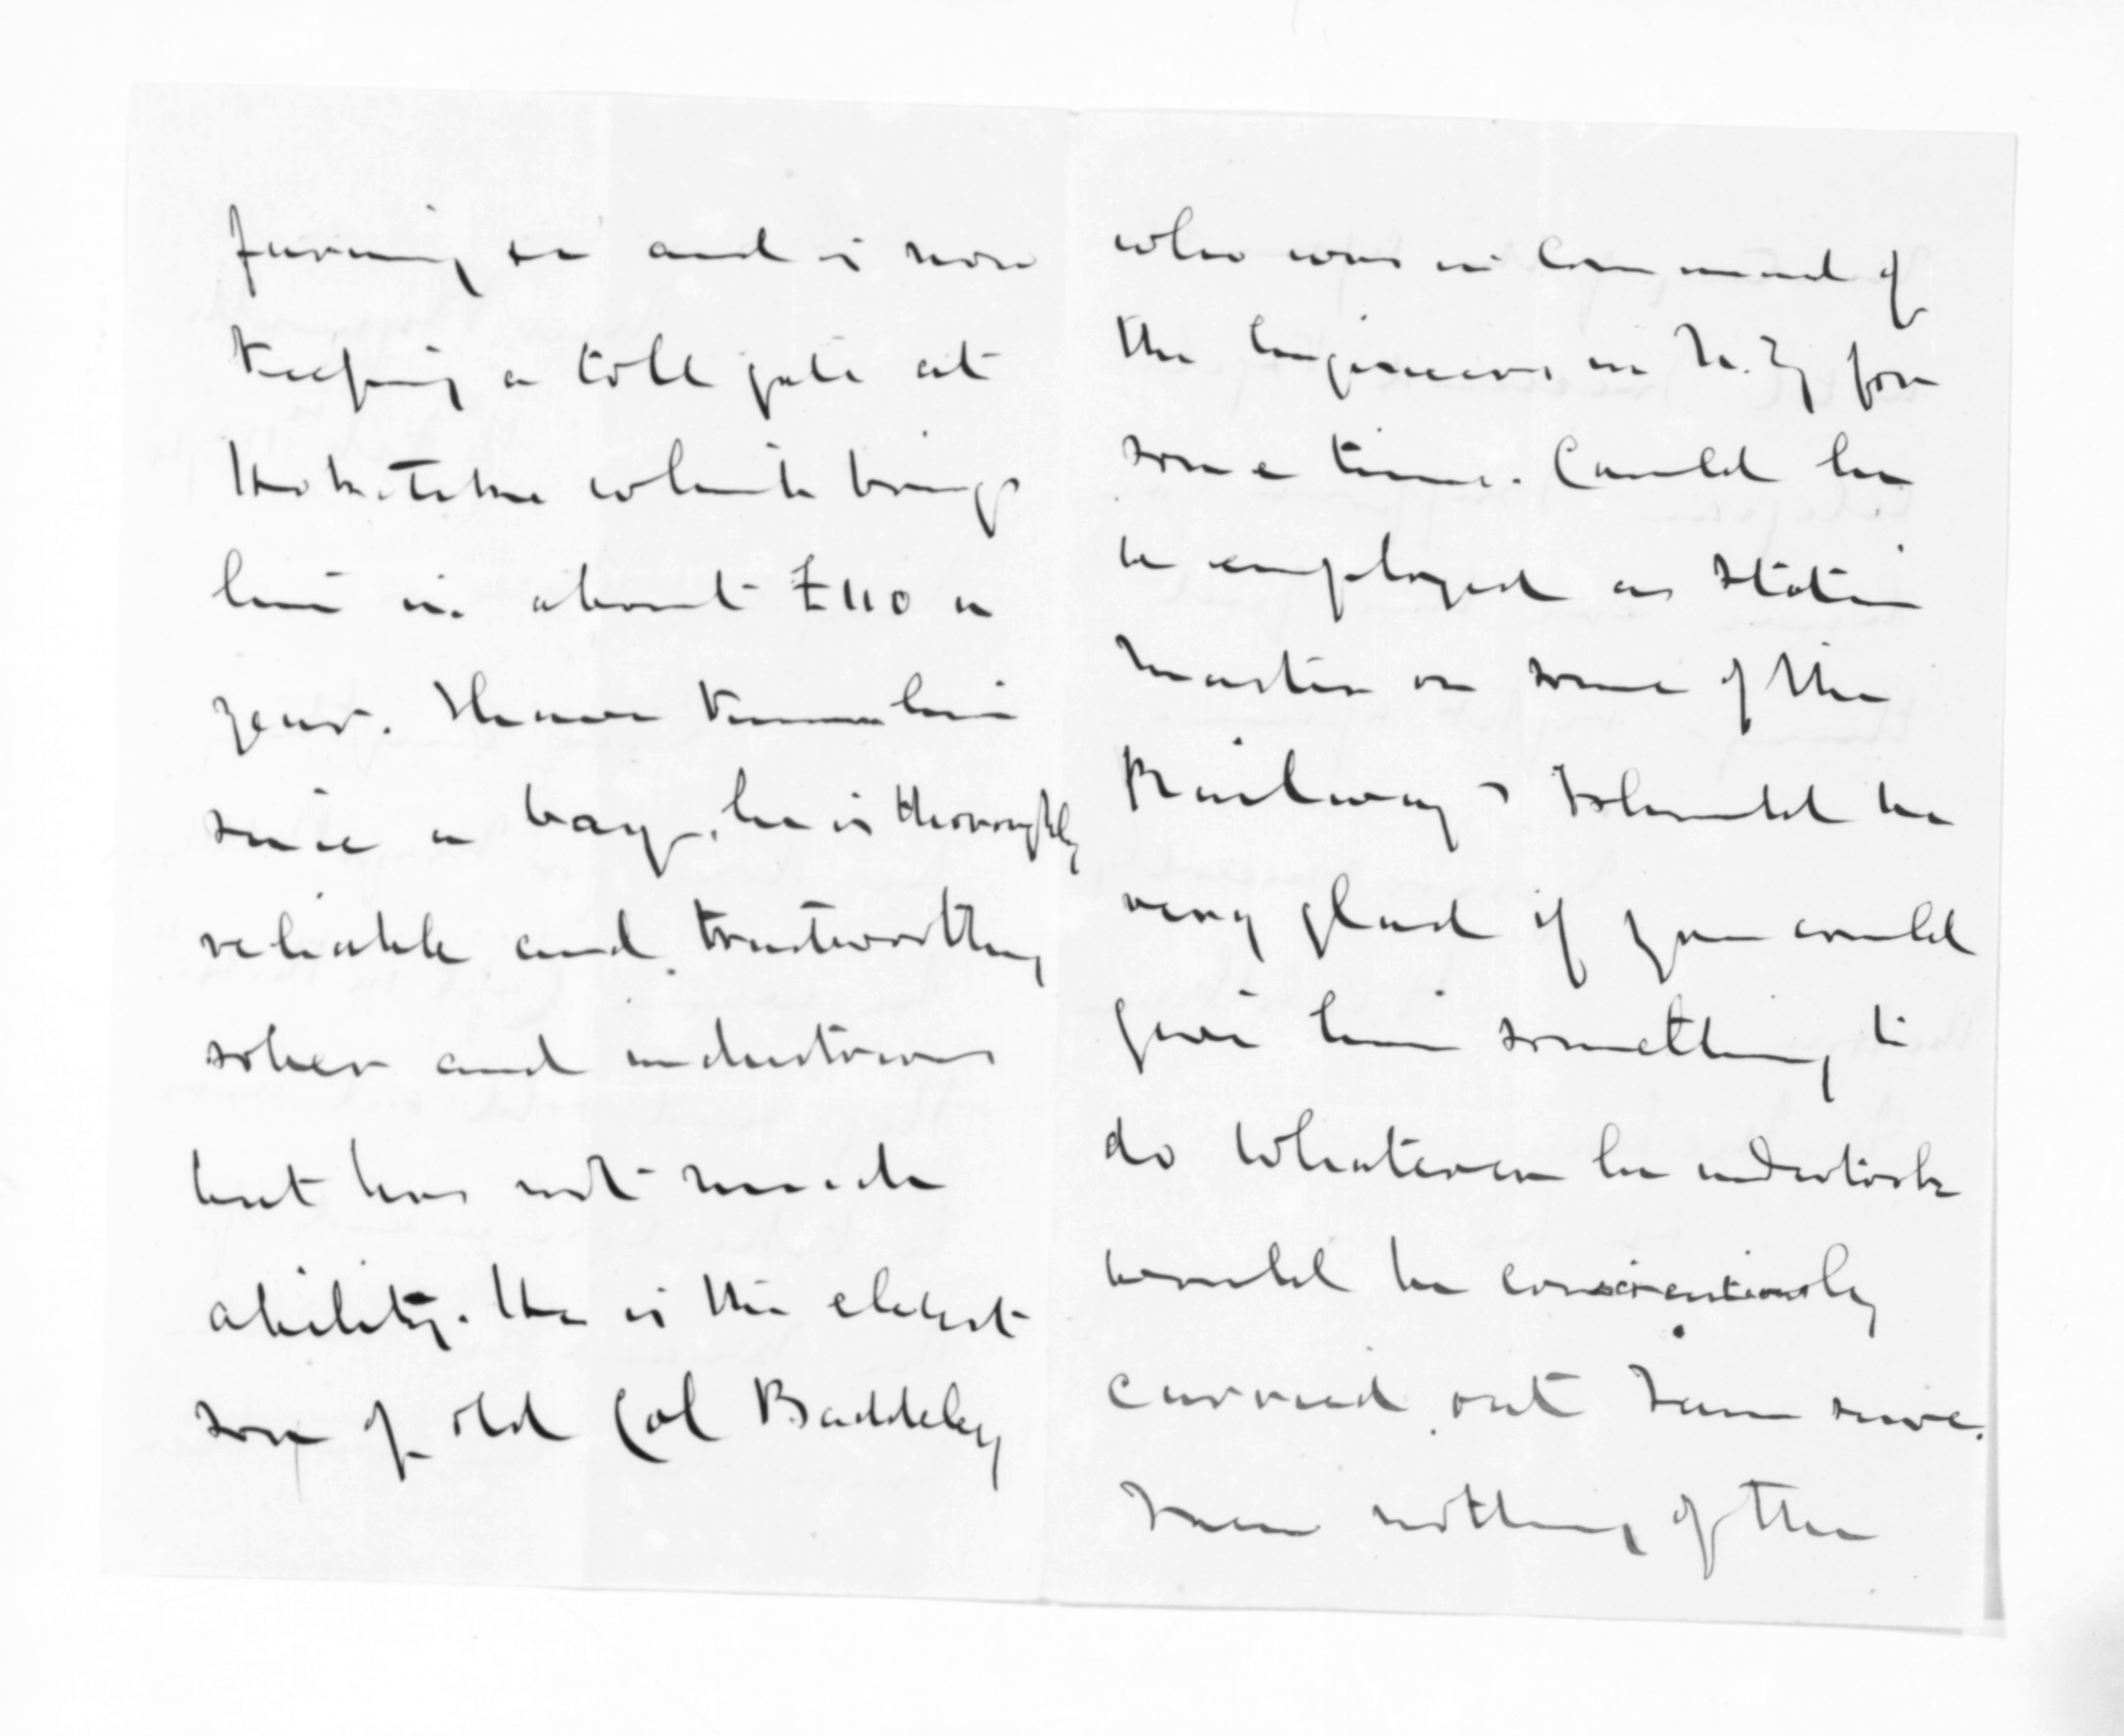 farming on and is now
keeping a toll gate at
which brings
him in about £110 a
year. I have known him
since a boy, he is thoroughly
reliable and trustworthy
sober and industrious
but has not much
ability. He is the eldest
son of old Col Baddeley
who was in Command of
the Engineers in N.Z for
some time. Could he
be employed as Station
Master on some of the
Railways I should be
very glad if you could
give him something to
do whatever he undertook
would be conscientiously
carried out I am sure.
I saw nothing of the